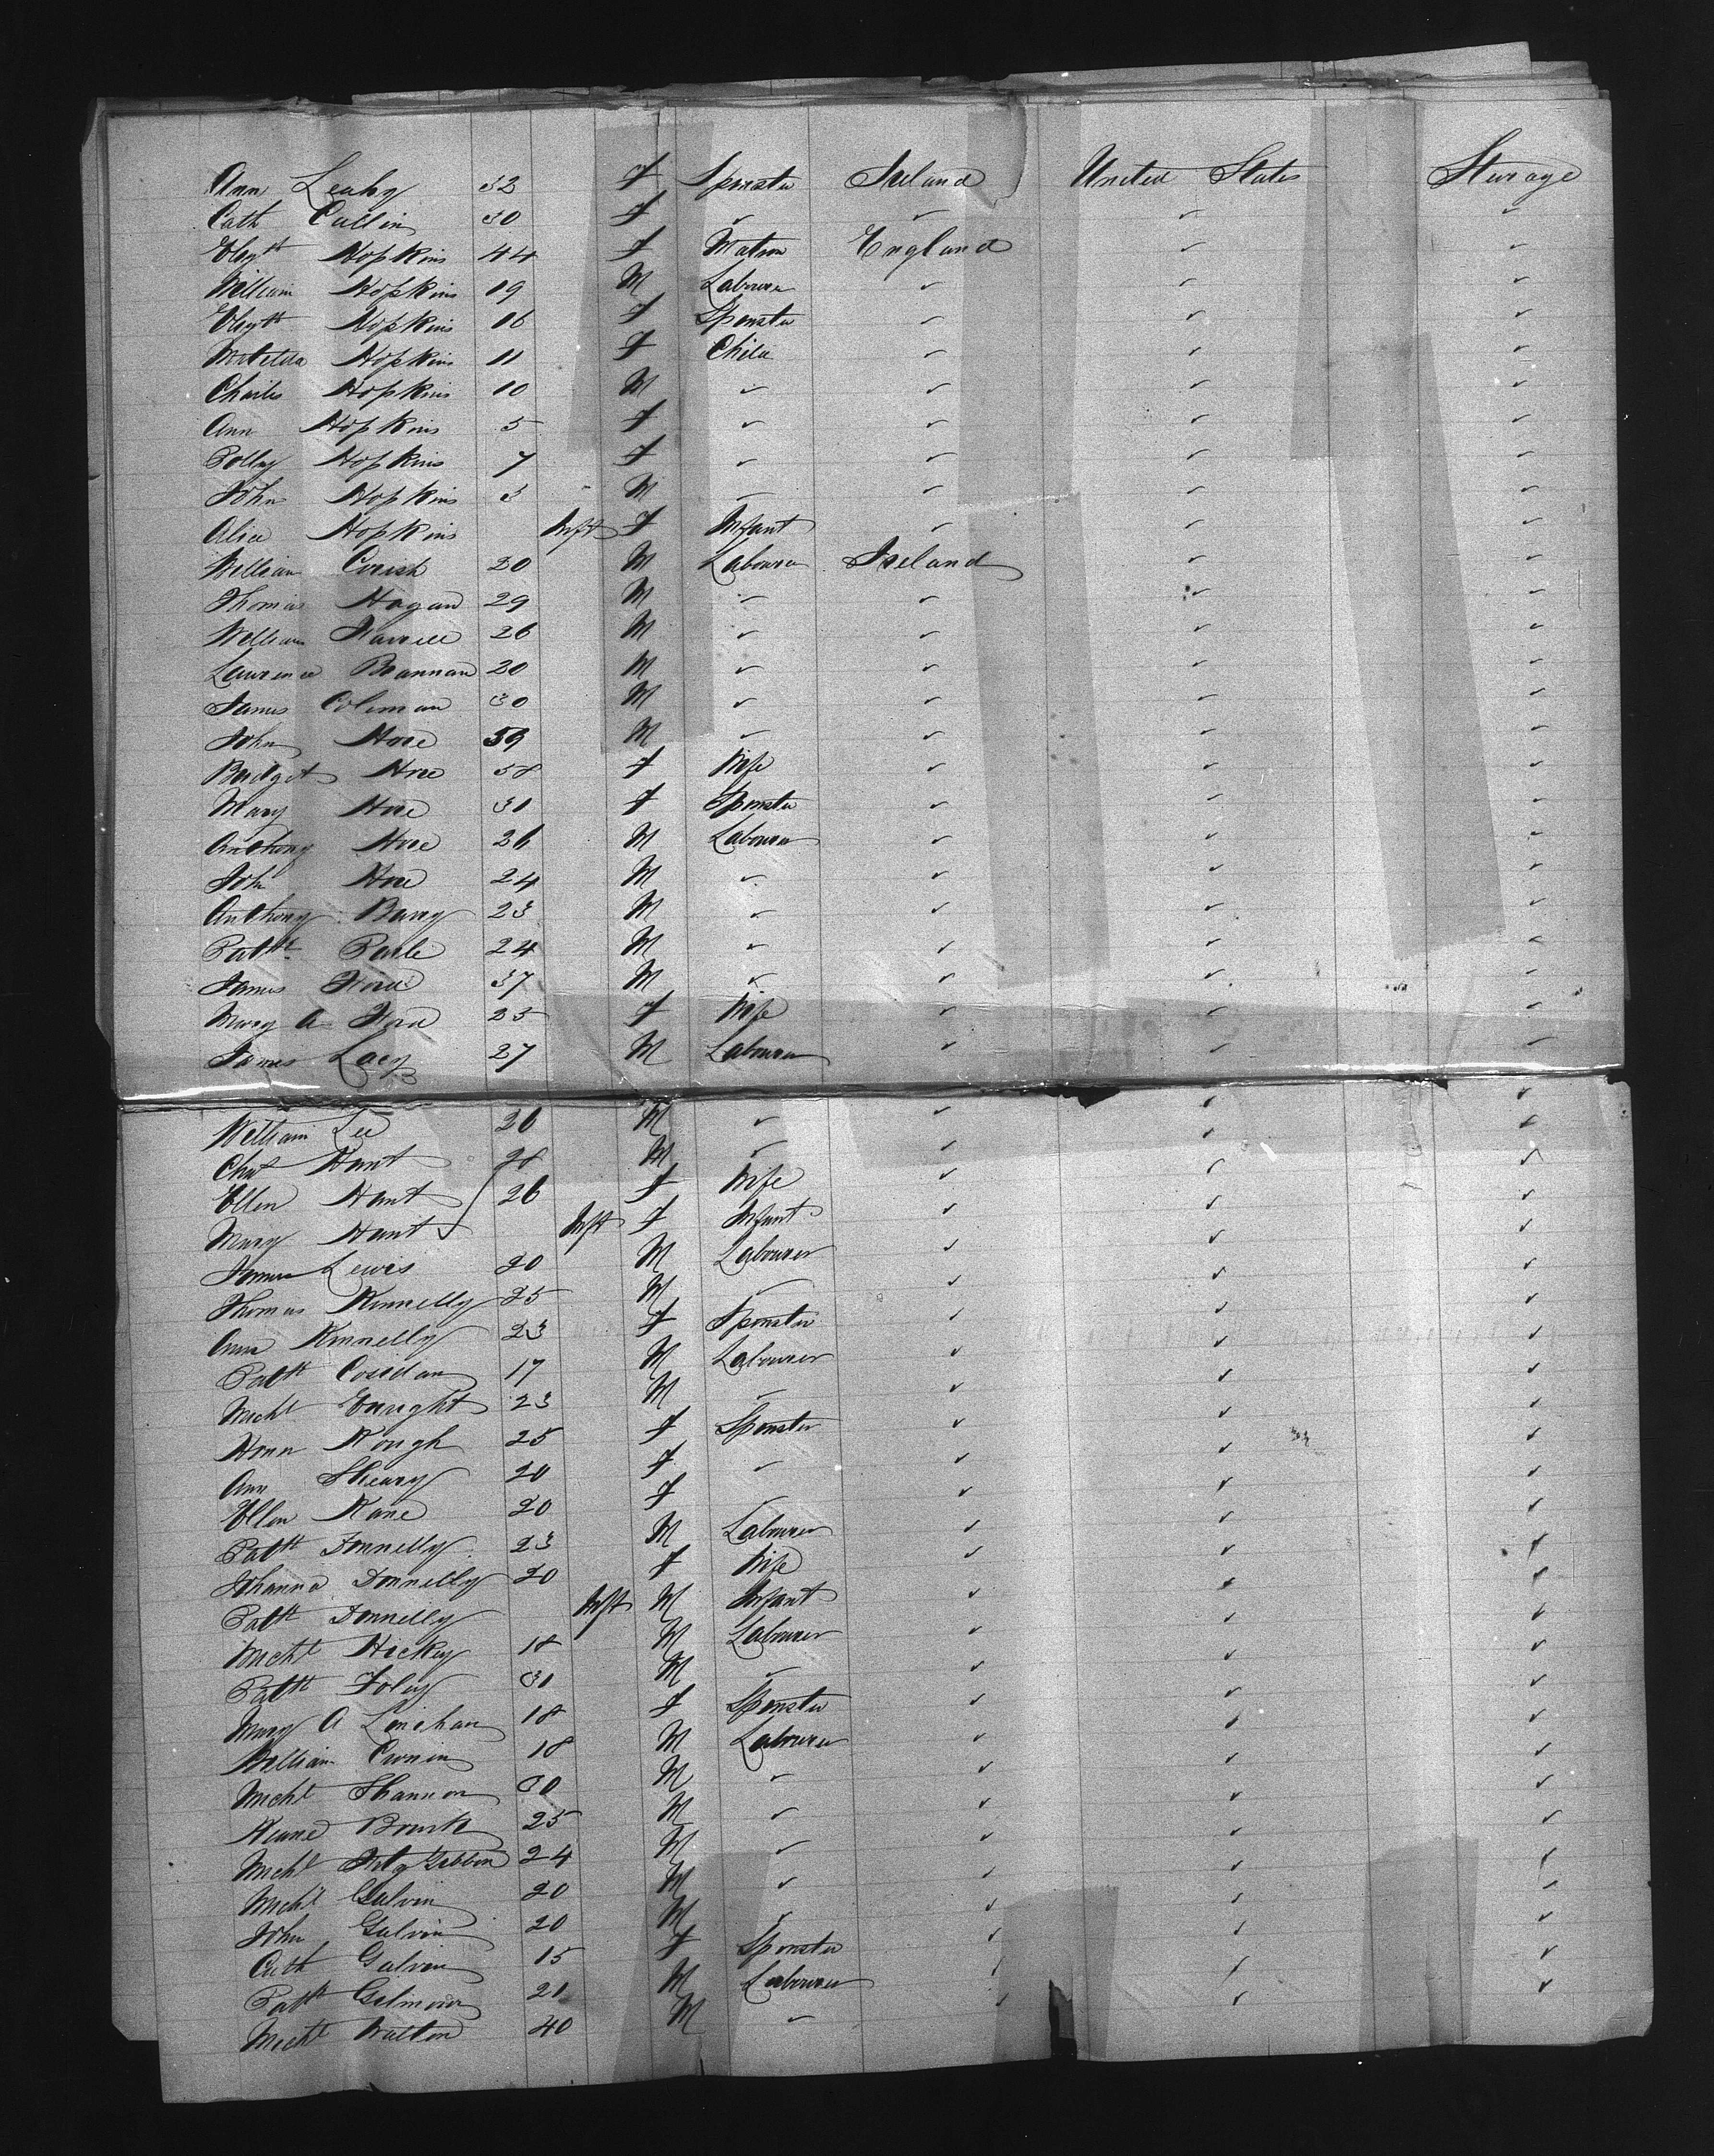 Ann Leahy 32 F Spinster Ireland United States Sterage
Cath Cullin 30 F ✓ ✓ ✓ ✓
Elizth Hopkins 44 F Matron England ✓ ✓
William Hopkins 19 M Labourer ✓ ✓ ✓
Elizth Hopkins 16 F Spinster ✓ ✓ ✓
Matilda Hopkins 11 F Child ✓ ✓ ✓
Charles Hopkins 10 M ✓ ✓ ✓ ✓
Ann Hopkins 5 F ✓ ✓ ✓ ✓
Polly Hopkins 7 F ✓ ✓ ✓ ✓
John Hopkins 3 M ✓ ✓ ✓ ✓
Alice Hopkins Inft F Infant ✓ ✓ ✓
William Corish 20 M Labourer Ireland ✓ ✓
Thomas Hagan 29 M ✓ ✓ ✓ ✓
William 26 M ✓ ✓ ✓ ✓
Lawrence Brannan 20 M ✓ ✓ ✓ ✓
James Coleman 30 M ✓ ✓ ✓ ✓
John Hore 59 M ✓ ✓ ✓ ✓
Bridget Hore 58 F Wife ✓ ✓ ✓
Mary Hore 31 F Spinster ✓ ✓ ✓
Anthony Hore 26 M Labourer ✓ ✓ ✓
John Hore 24 M ✓ ✓ ✓ ✓
Anthony Barry 23 M ✓ ✓ ✓ ✓
Patk Parle 24 M ✓ ✓ ✓ ✓
James 37 M ✓ ✓ ✓ ✓
Mary A 25 F Wife ✓ ✓ ✓
James Lacy 27 M Labourer ✓ ✓ ✓
William Lee 26 M ✓ ✓ ✓ ✓
Chas Hunt 28 M ✓ ✓ ✓ ✓
Ellen Hunt 26 F Wife ✓ ✓ ✓
Mary Hunt Inft F Infant ✓ ✓ ✓
James Lewis 20 M Labourer ✓ ✓ ✓
Thomas Kennelly 25 M ✓ ✓ ✓ ✓
Anna Kennelly 23 F Spinster ✓ ✓ ✓
Patk Costdan 17 M Labourer ✓ ✓ ✓
Michl Enright 23 M ✓ ✓ ✓ ✓
Honn Keough 25 F Spinster ✓ ✓ ✓
Ann Sheary 20 F ✓ ✓ ✓ ✓
Ellen Kane 20 F ✓ ✓ ✓ ✓
Patk Donnelly 23 M Labourer ✓ ✓ ✓
Johanna Donnelly 20 F Wife ✓ ✓ ✓
Patk Donnelly Inft M Infant ✓ ✓ ✓
Michl Hickey 18 M Labourer ✓ ✓ ✓
Patk Foley 31 M ✓ ✓ ✓ ✓
Mary A Linehan 18 F Spinster ✓ ✓ ✓
William Cronin 18 M Labourer ✓ ✓ ✓
Michl Shannon 30 M ✓ ✓ ✓ ✓
Keane Bourk 25 M ✓ ✓ ✓ ✓
Michl Fitz Gibbon 24 M ✓ ✓ ✓ ✓
Michl Galvin 20 M ✓ ✓ ✓ ✓
John Galvin 20 M ✓ ✓ ✓ ✓
Cath Galvin 15 F Spinster ✓ ✓ ✓
Patk Gilmour 21 M Labourer ✓ ✓ ✓
Michl Walton 40 M ✓ ✓ ✓ ✓